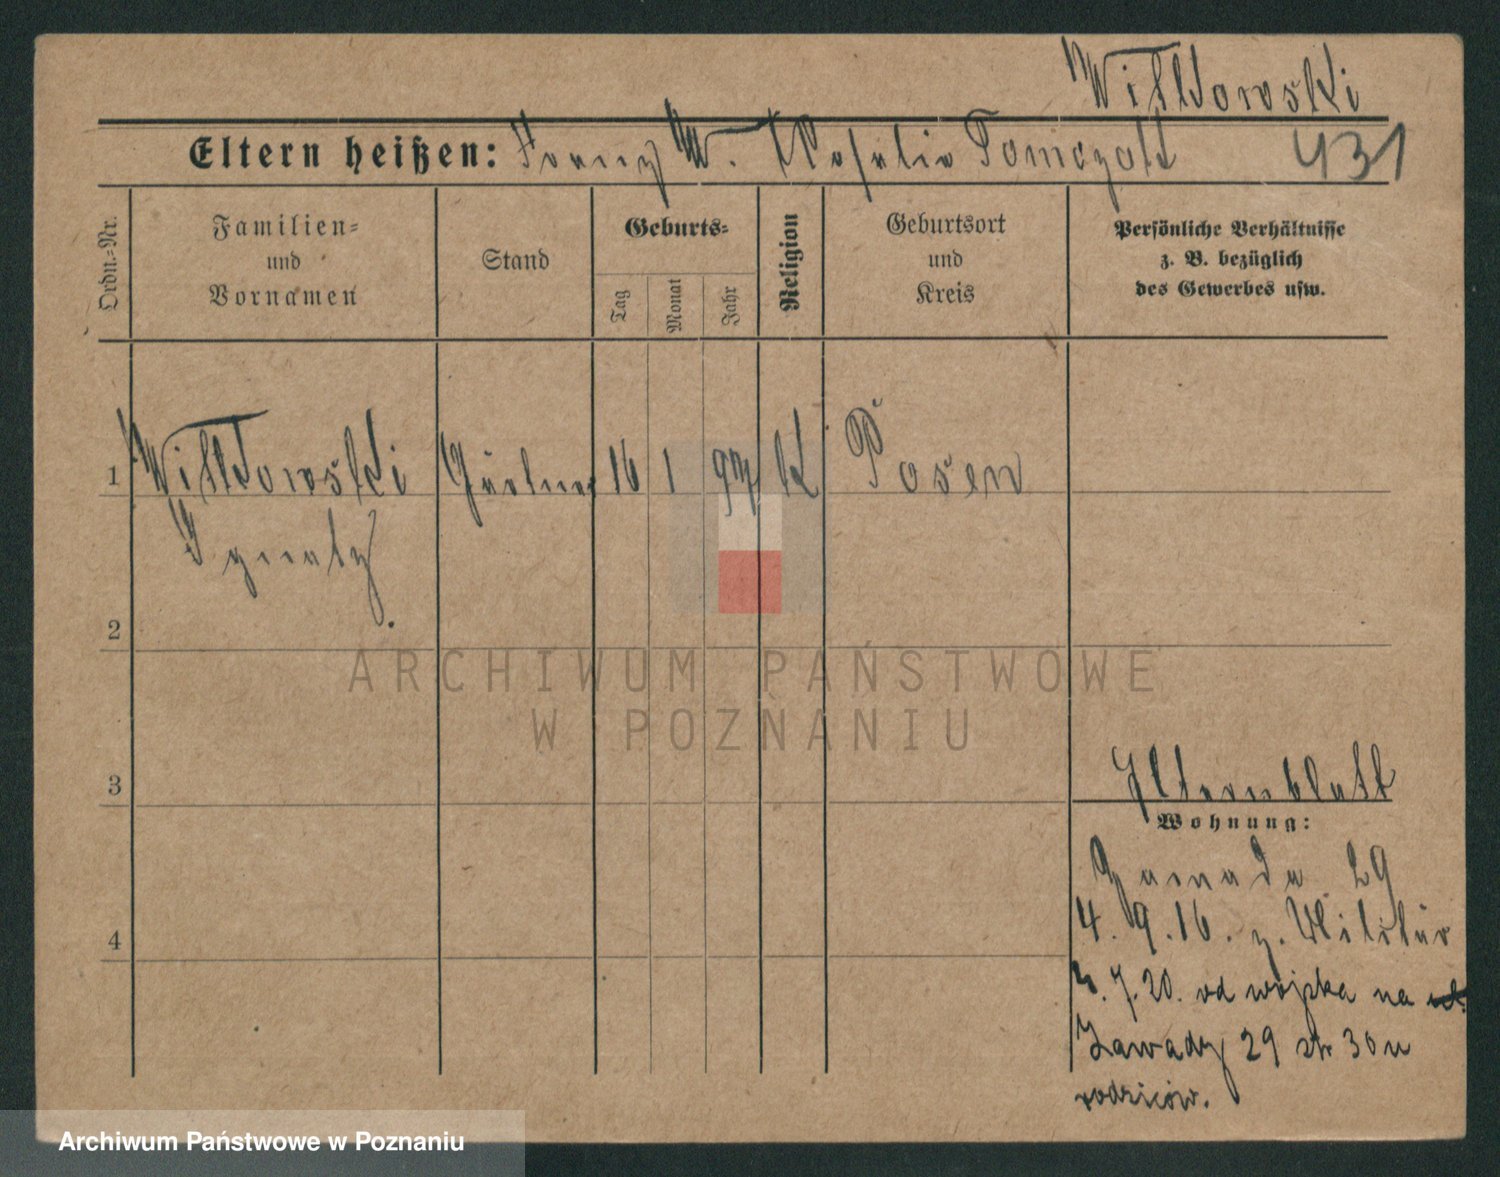 Wittkowski
Eltern heißen: Franz W. Rosalia Tomczak 431
Ordn.-Nr.
Familien-
und
Vornamen
Stand
Geburts-
Tag
Monat
Jahr
Religion
Geburtsort
und
Kreis
Persönliche Verhältnisse
z. B. bezüglich
des Gewerbes usw.
1 Wittkowski Gärtner 16 1 97 K Posen
Ignatz.
2
ARCHIWUM PAŃSTWOWE
W POZNANIU
3
Elternblatt
Wohnung:
Zawade 29
4
4. 9. 16. z. Militär
7. 20. od wojska na
Zawady 29 str 30 u
rodziców.
Archiwum Państwowe w Poznaniu